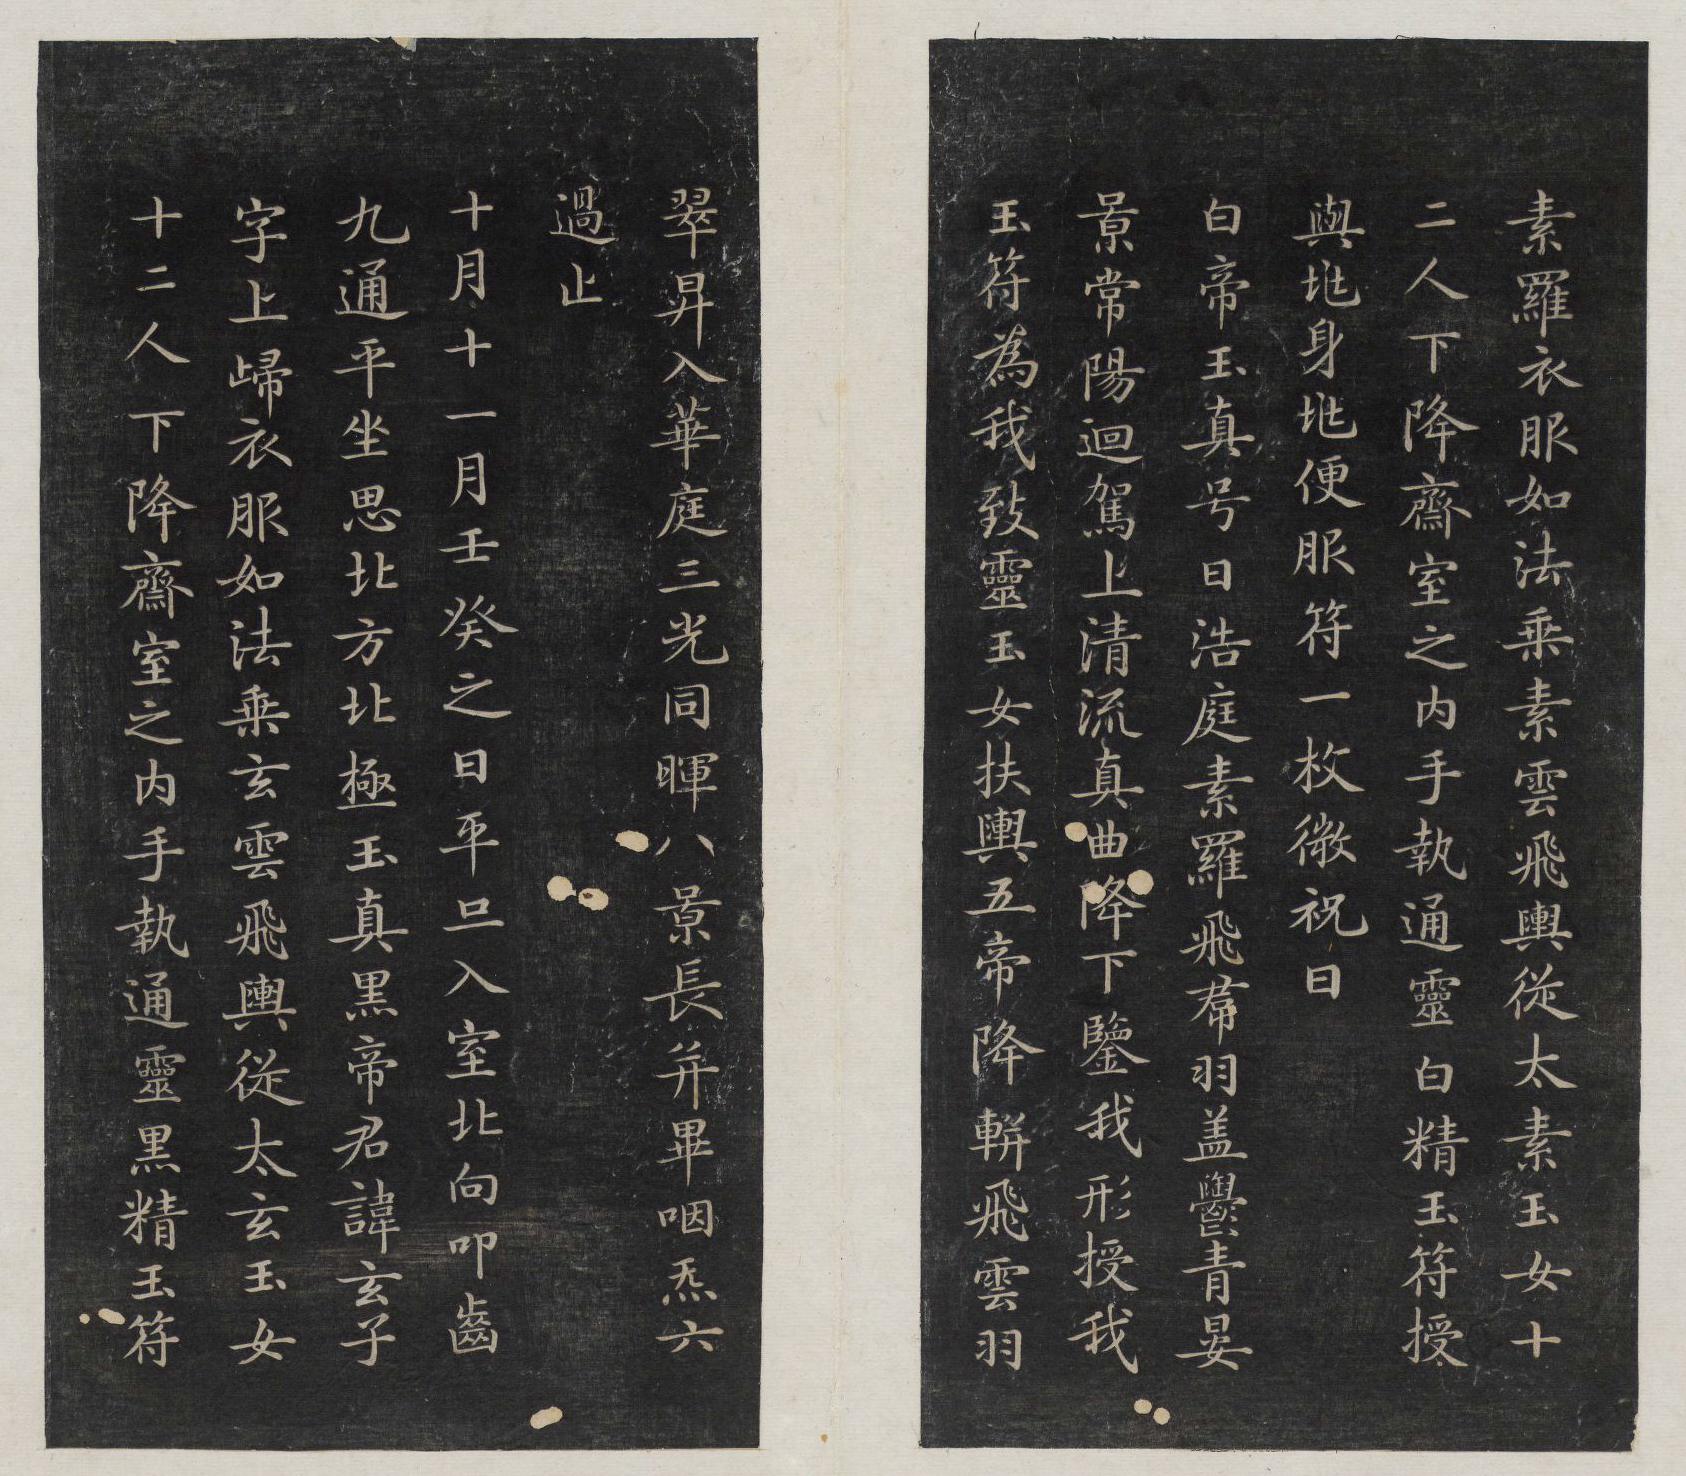 素羅衣服如法乗素雲飛輿從太素玉女十
二人下降齋室之内手執通靈白精玉符授
與𡉏身𡉏便服符一枚微祝曰
白帝玉真号曰浩庭素羅飛帬羽盖鬱青晏
景常陽迴駕上清流真曲降下鑒我形授我
玉符為我致靈玉女扶輿五帝降軿飛雲羽
翠昇入華庭三光同暉八景長并畢咽炁六
過止
十月十一月壬癸之日平旦入室北向叩齒
九通平坐思北方北極玉真黑帝君諱玄子
字上歸衣服如法乗玄雲飛輿從太玄玉女
十二人下降齋室之内手執通靈黑精玉符